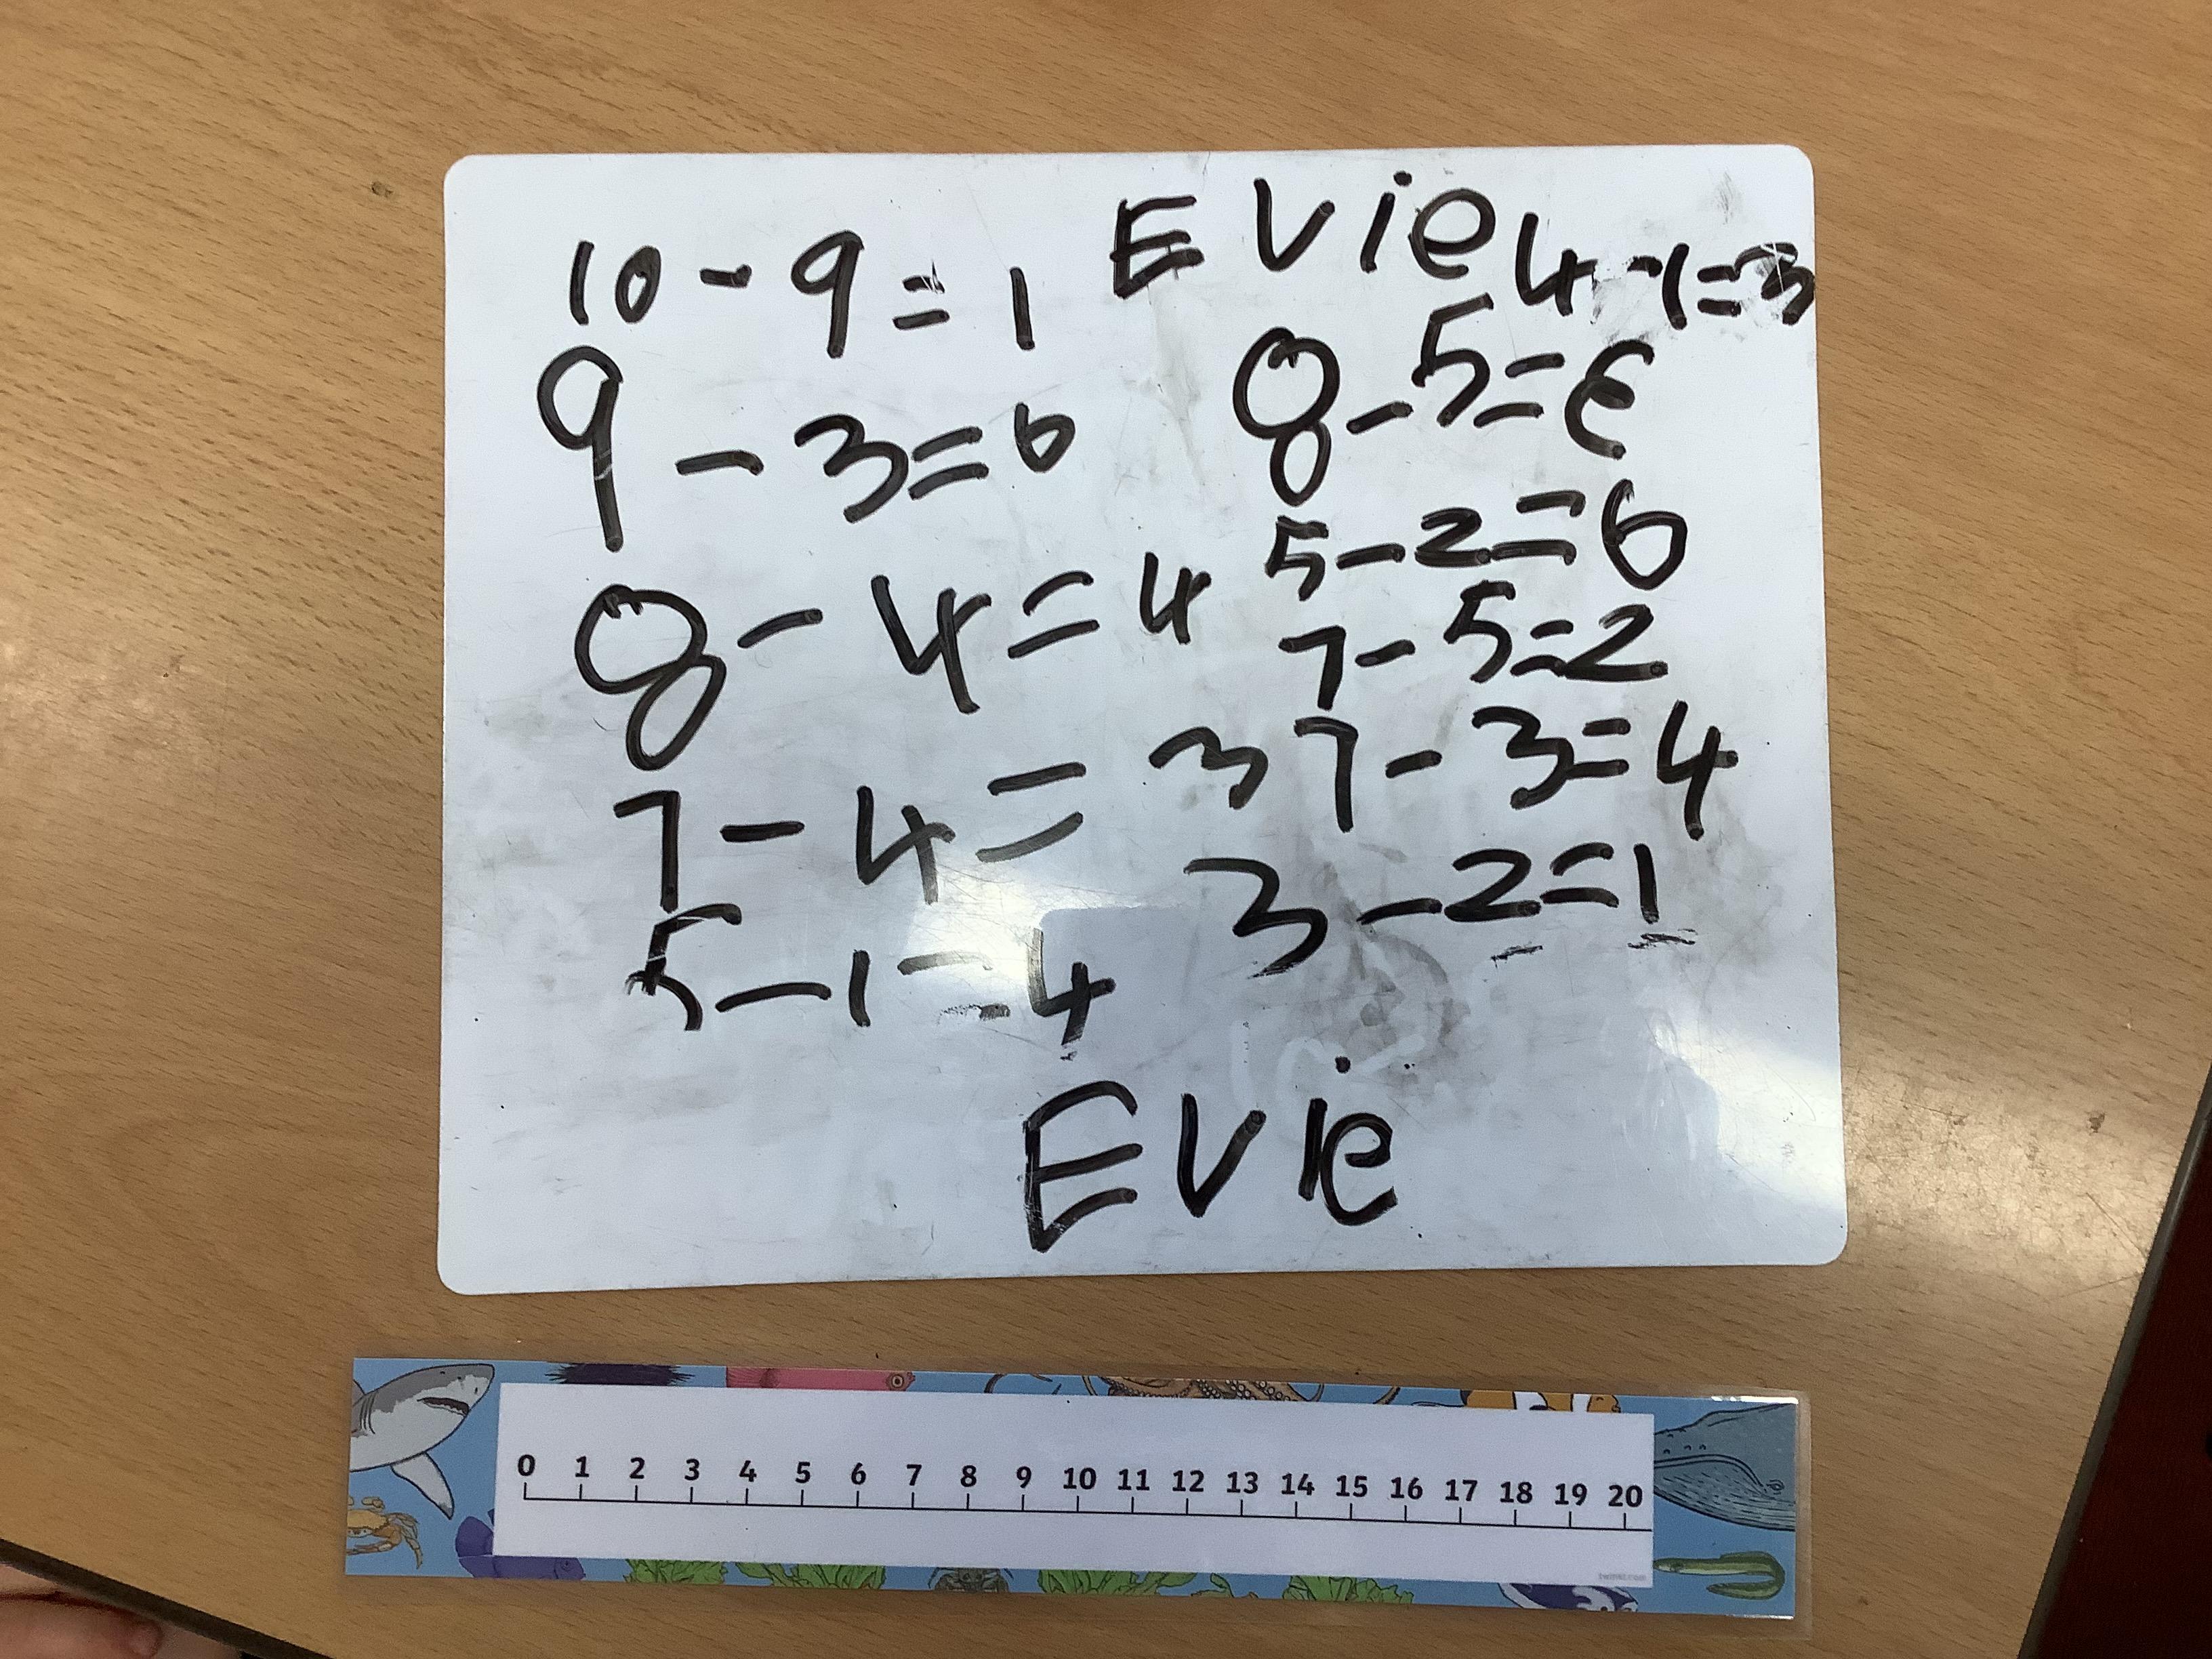 Evie
10 - 9 = 1
9 - 3 = 6
8 - 4 = 4
7 - 4 = 3
5 - 1 = 4
4 - 1 = 3
8 - 5 = Ɛ
5 - 2 = 6
7 - 5 = 2
7 - 3 = 4
3 - 2 = 1
Evie
0 1 2 3 4 5 6 7 8 9 10 11 12 13 14 15 16 17 18 19 20